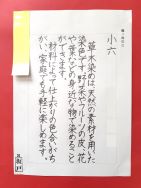 小六
草木染めは、天然の素材を用いた
染色です。野菜やフルーツの皮、花
や葉などの身近な物で染めること
ができます。
材料によって仕上りの色合いがち
がい、家庭でも手軽に楽しめます。